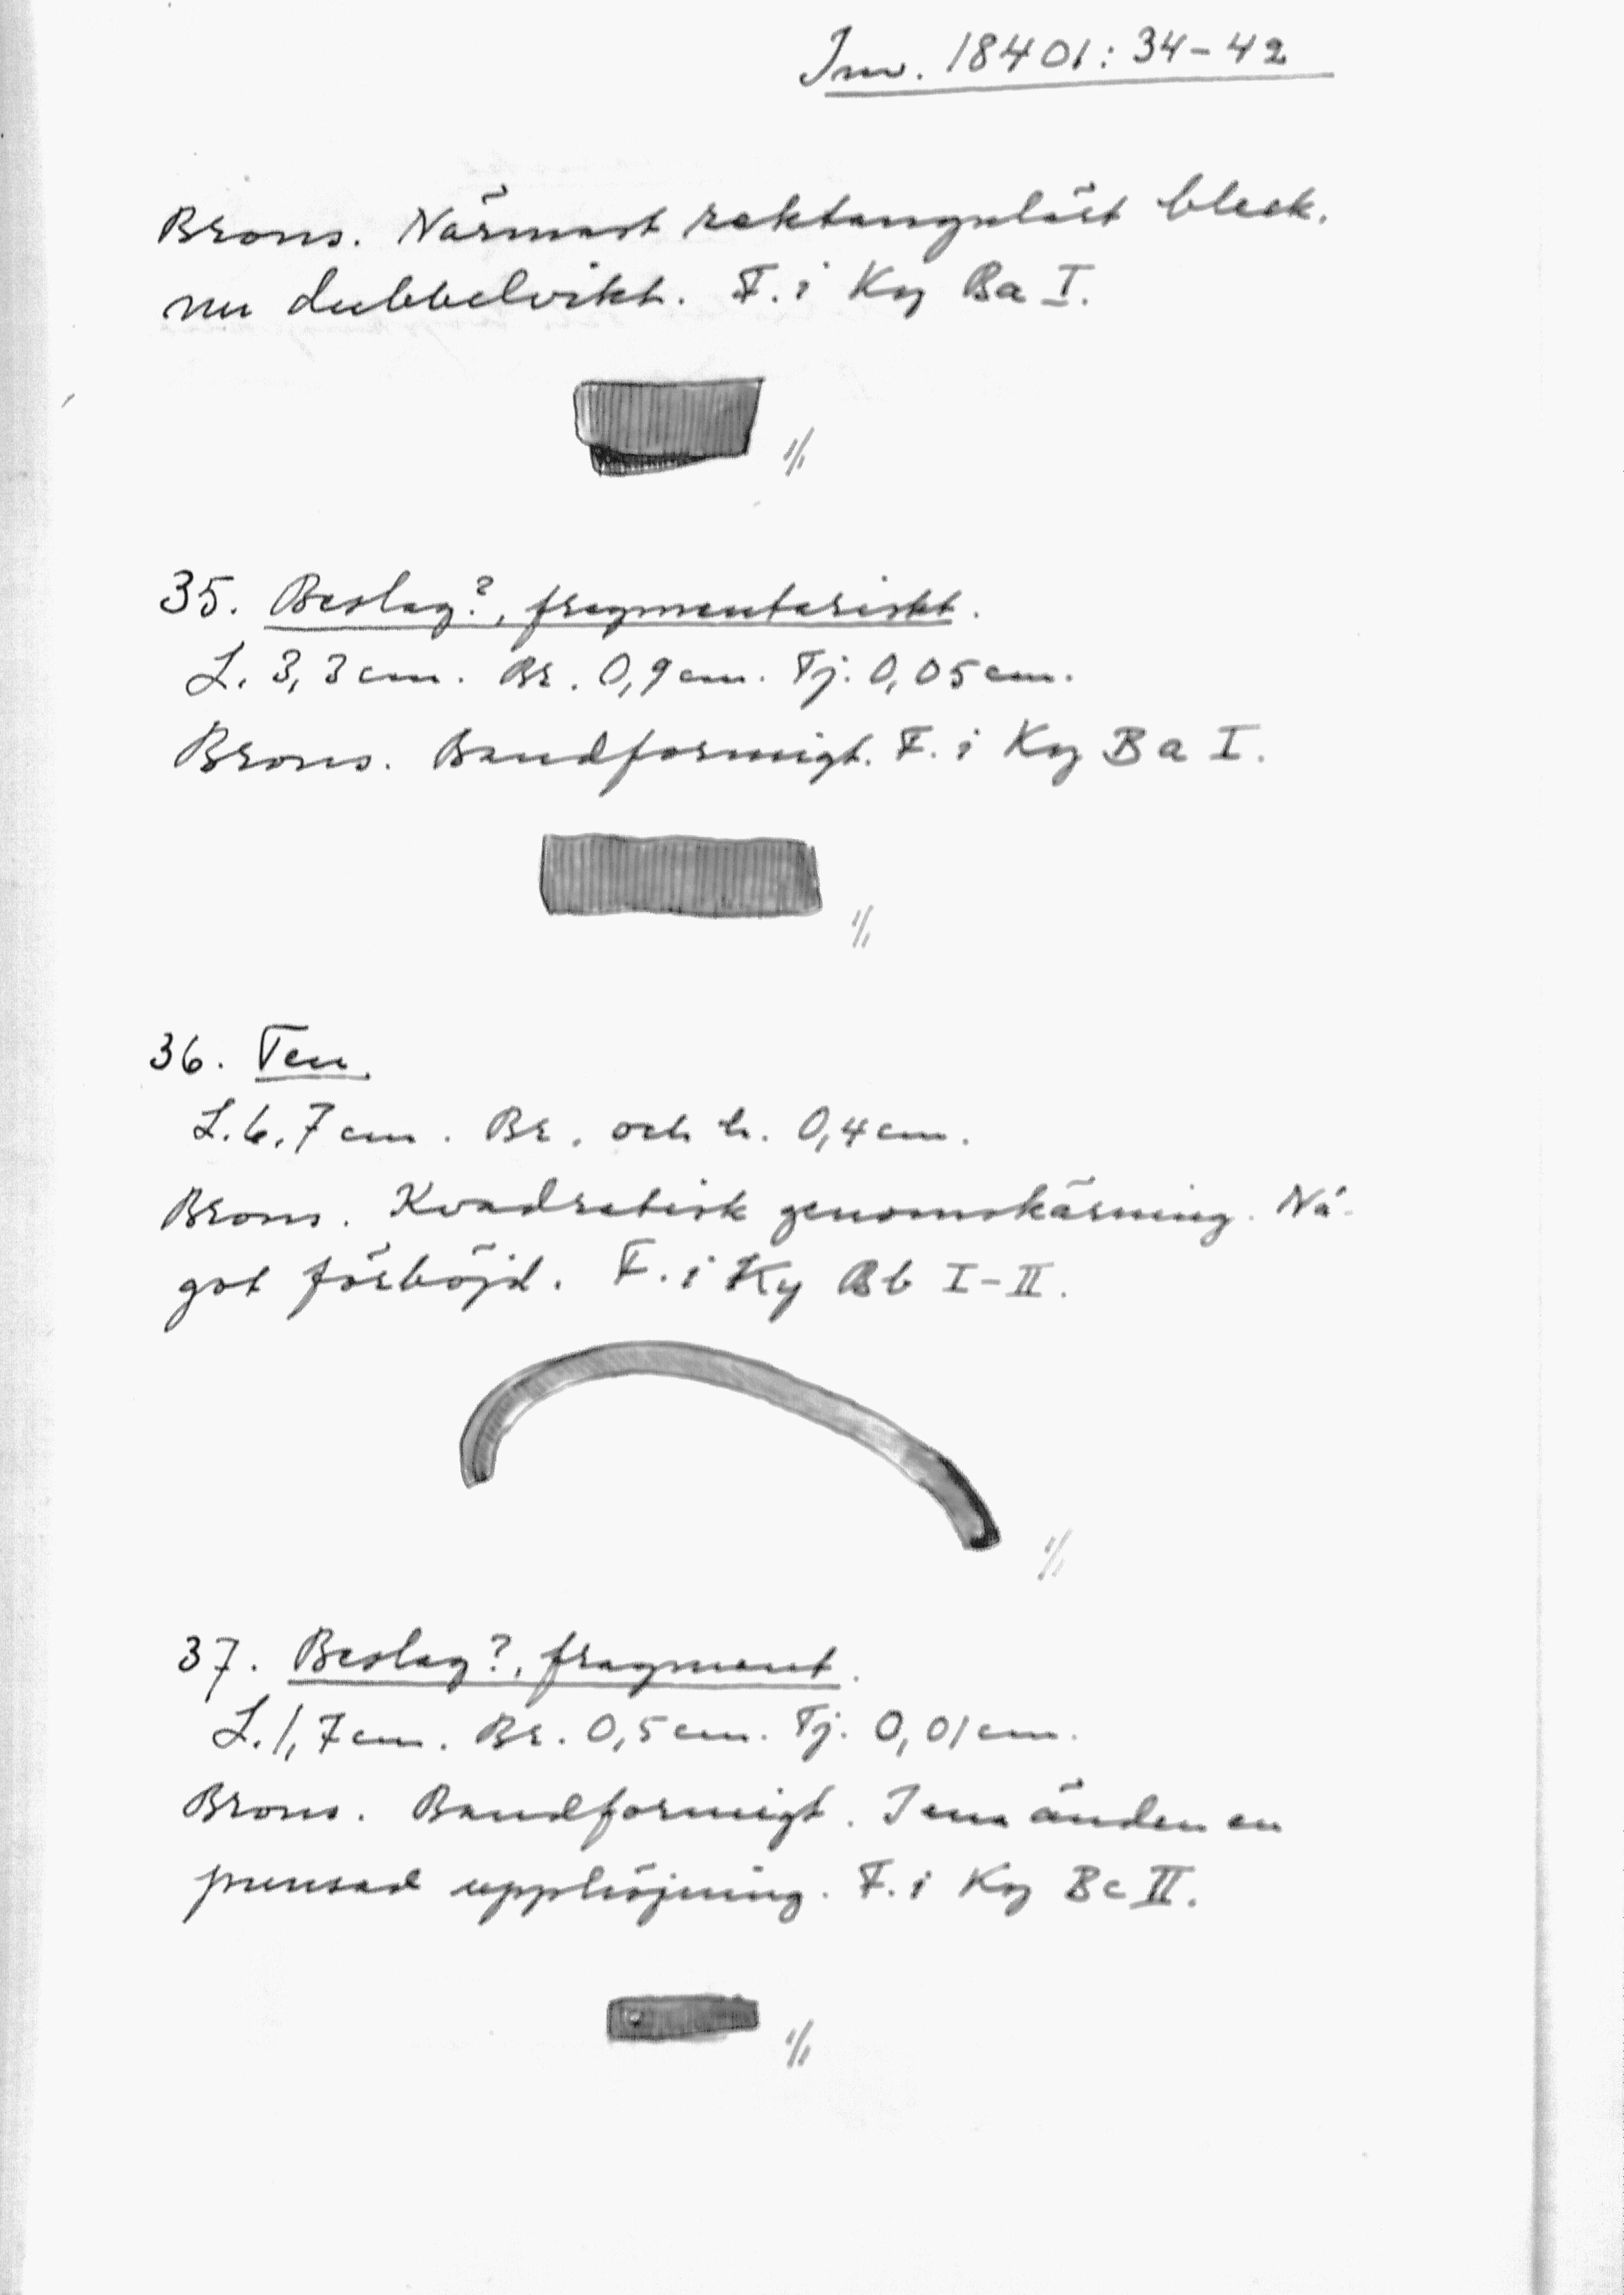 Inv. 18401:34-42
Brons. Närmast rektangulärt bleck.
nu dubbelvikt. F. i Ky Ba I.
1/1
35. Beslag?, fragmentariskt.
L. 3,3 cm. Br. 0,9 cm. Tj. 0,05 cm.
Brons. Bandformigt. F. i Ky Ba I.
1/1
36. Ten.
L. 6,7 cm. Br. och h. 0,4 cm.
Brons. Kvadratisk genomskärning. Nå-
got förböjd. F. i Ky Bb I-II.
1/1
37. Beslag?, fragment.
L. 1,7 cm. Br. 0,5 cm. Tj. 0,01 cm.
Brons. Bandformigt. I ena änden en
punsad upphöjning. F. i Ky Bc II.
1/1